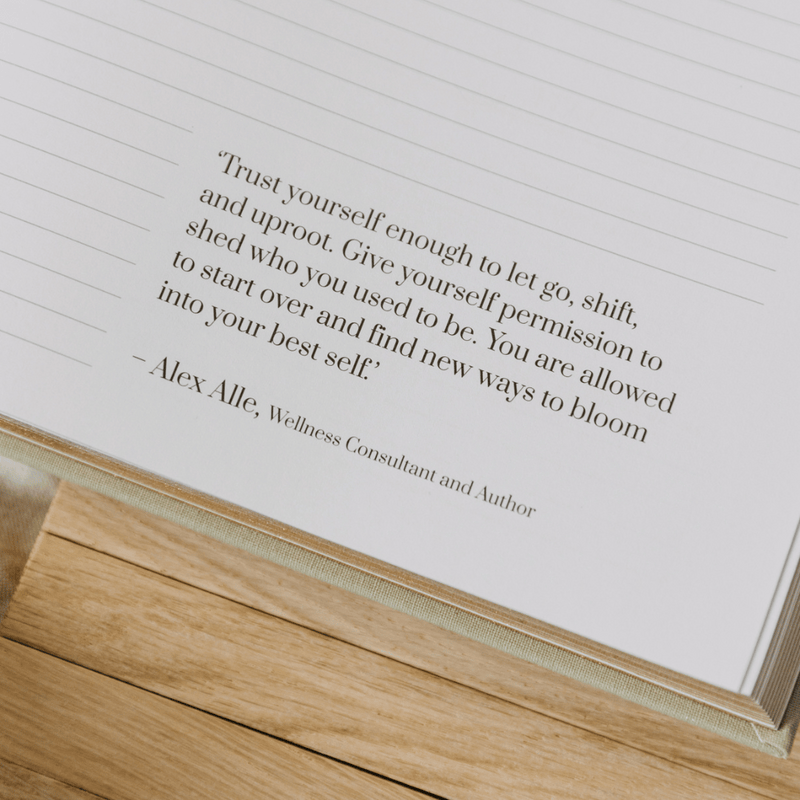 ‘Trust yourself enough to let go, shift,
and uproot. Give yourself permission to
shed who you used to be. You are allowed
to start over and find new ways to bloom
into your best self.’
– Alex Alle, Wellness Consultant and Author